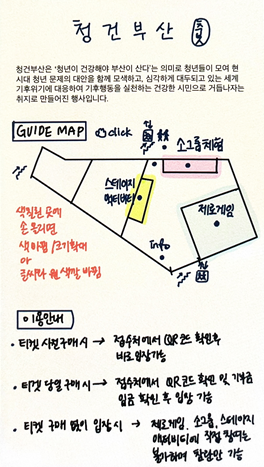 청건부산
청건부산은 '청년이 건강해야 부산이 산다'는 의미로 청년들이 모여 현
시대 청년 문제의 대안을 함께 모색하고, 심각하게 대두되고 있는 세계
기후위기에 대응하여 기후행동을 실천하는 건강한 시민으로 거듭나자는
취지로 만들어진 행사입니다.
GUIDE MAP
click
소그룹체험
스테이지
액티비티
제로게임
색칠된 곳에
손 올리면
색 바뀜 / 크기확대
Info
이용안내
• 티켓 사전구매 시 → 접수처에서 QR코드 확인후
바로입장가능
• 티켓 당일 구매시 → 접수처에서 QR코드 확인 및 기부금
입금 확인 후 입장 가능
• 티켓 구매 없이 입장 시 → 제로게임, 소그룹, 스테이지
액티비티에 직접 참여는
불가하며 관람만 가능